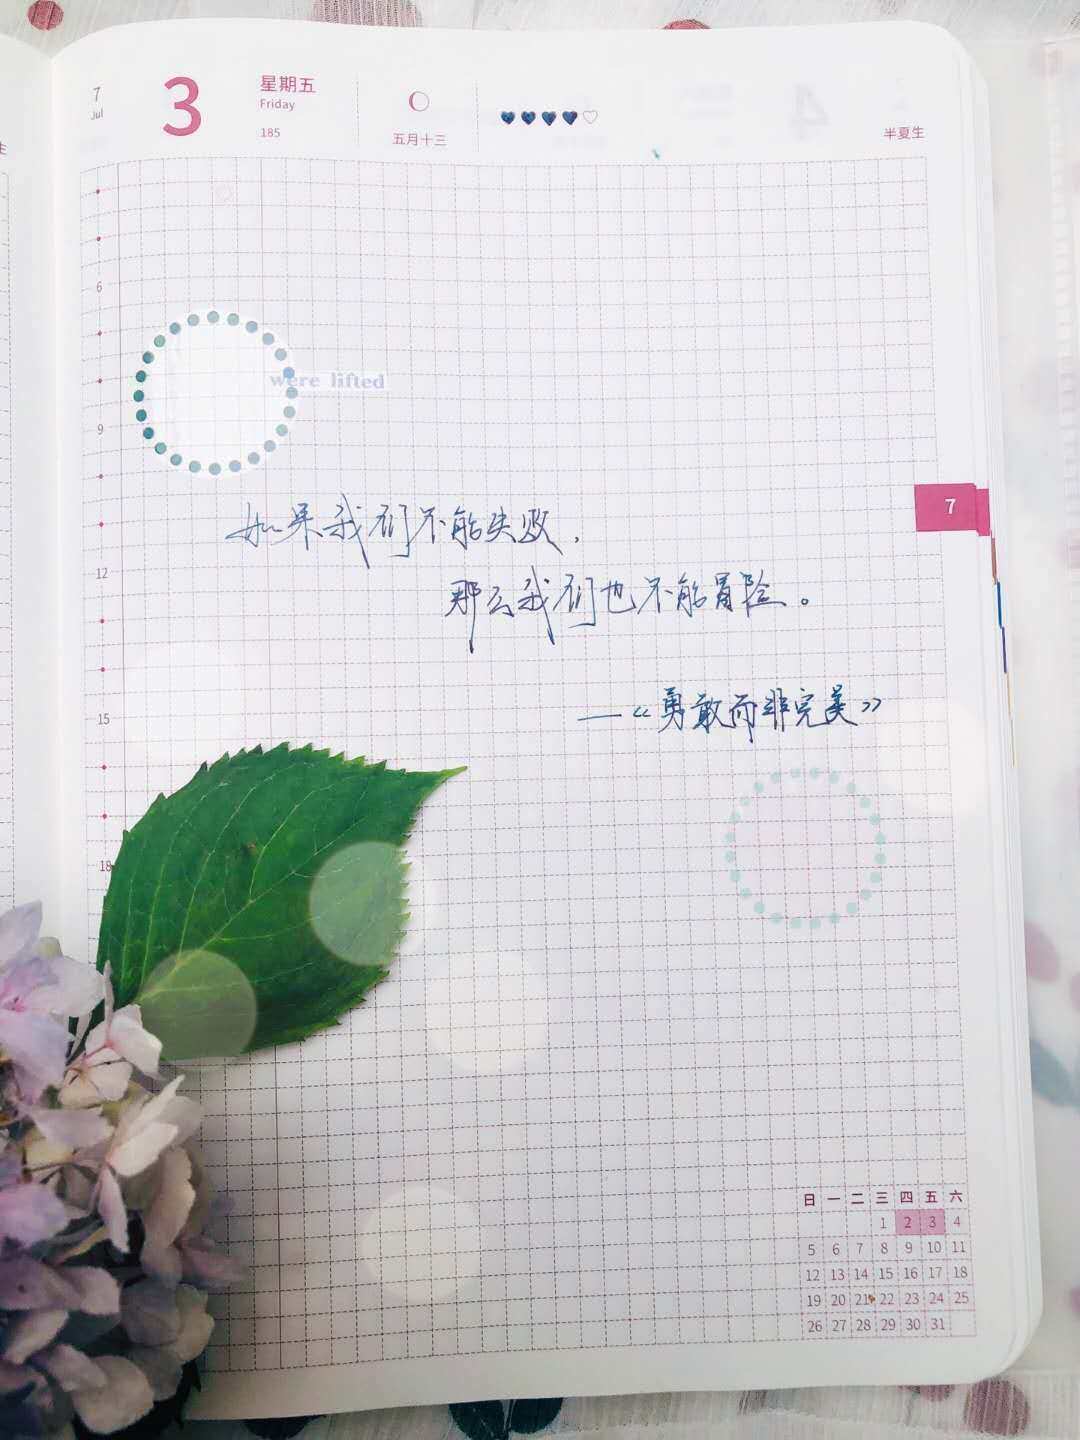 7 Jul 3 星期五 Friday 185 五月十三 半夏生
6
were lifted
9
7
如果我们不能失败，
12
那么我们也不能冒险。
——《勇敢而非完美》
15
18
日 一 二 三 四 五 六
1 2 3 4
5 6 7 8 9 10 11
12 13 14 15 16 17 18
19 20 21 22 23 24 25
26 27 28 29 30 31